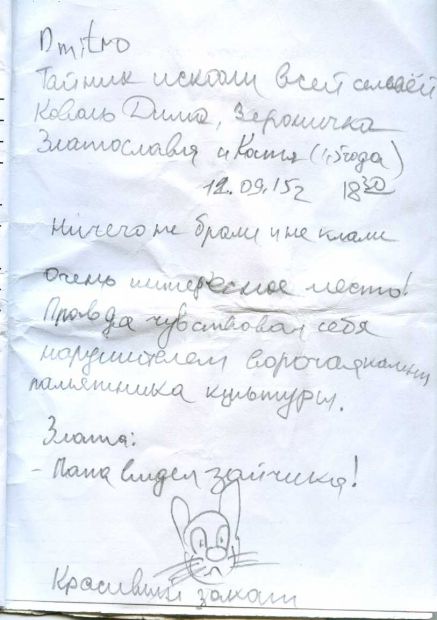 Dmitro
Тайник искали всей семьёй
Коваль Дима, Вероничка
Златославия и Катя (1,5 года)
12.09.15г 18 30
Ничего не брали и не клали
Очень интересное место!
Правда чувствовал себя
нарушителем ворочая камни
памятника культуры.
Злата:
- Папа видел зайчика!
Красивый закат